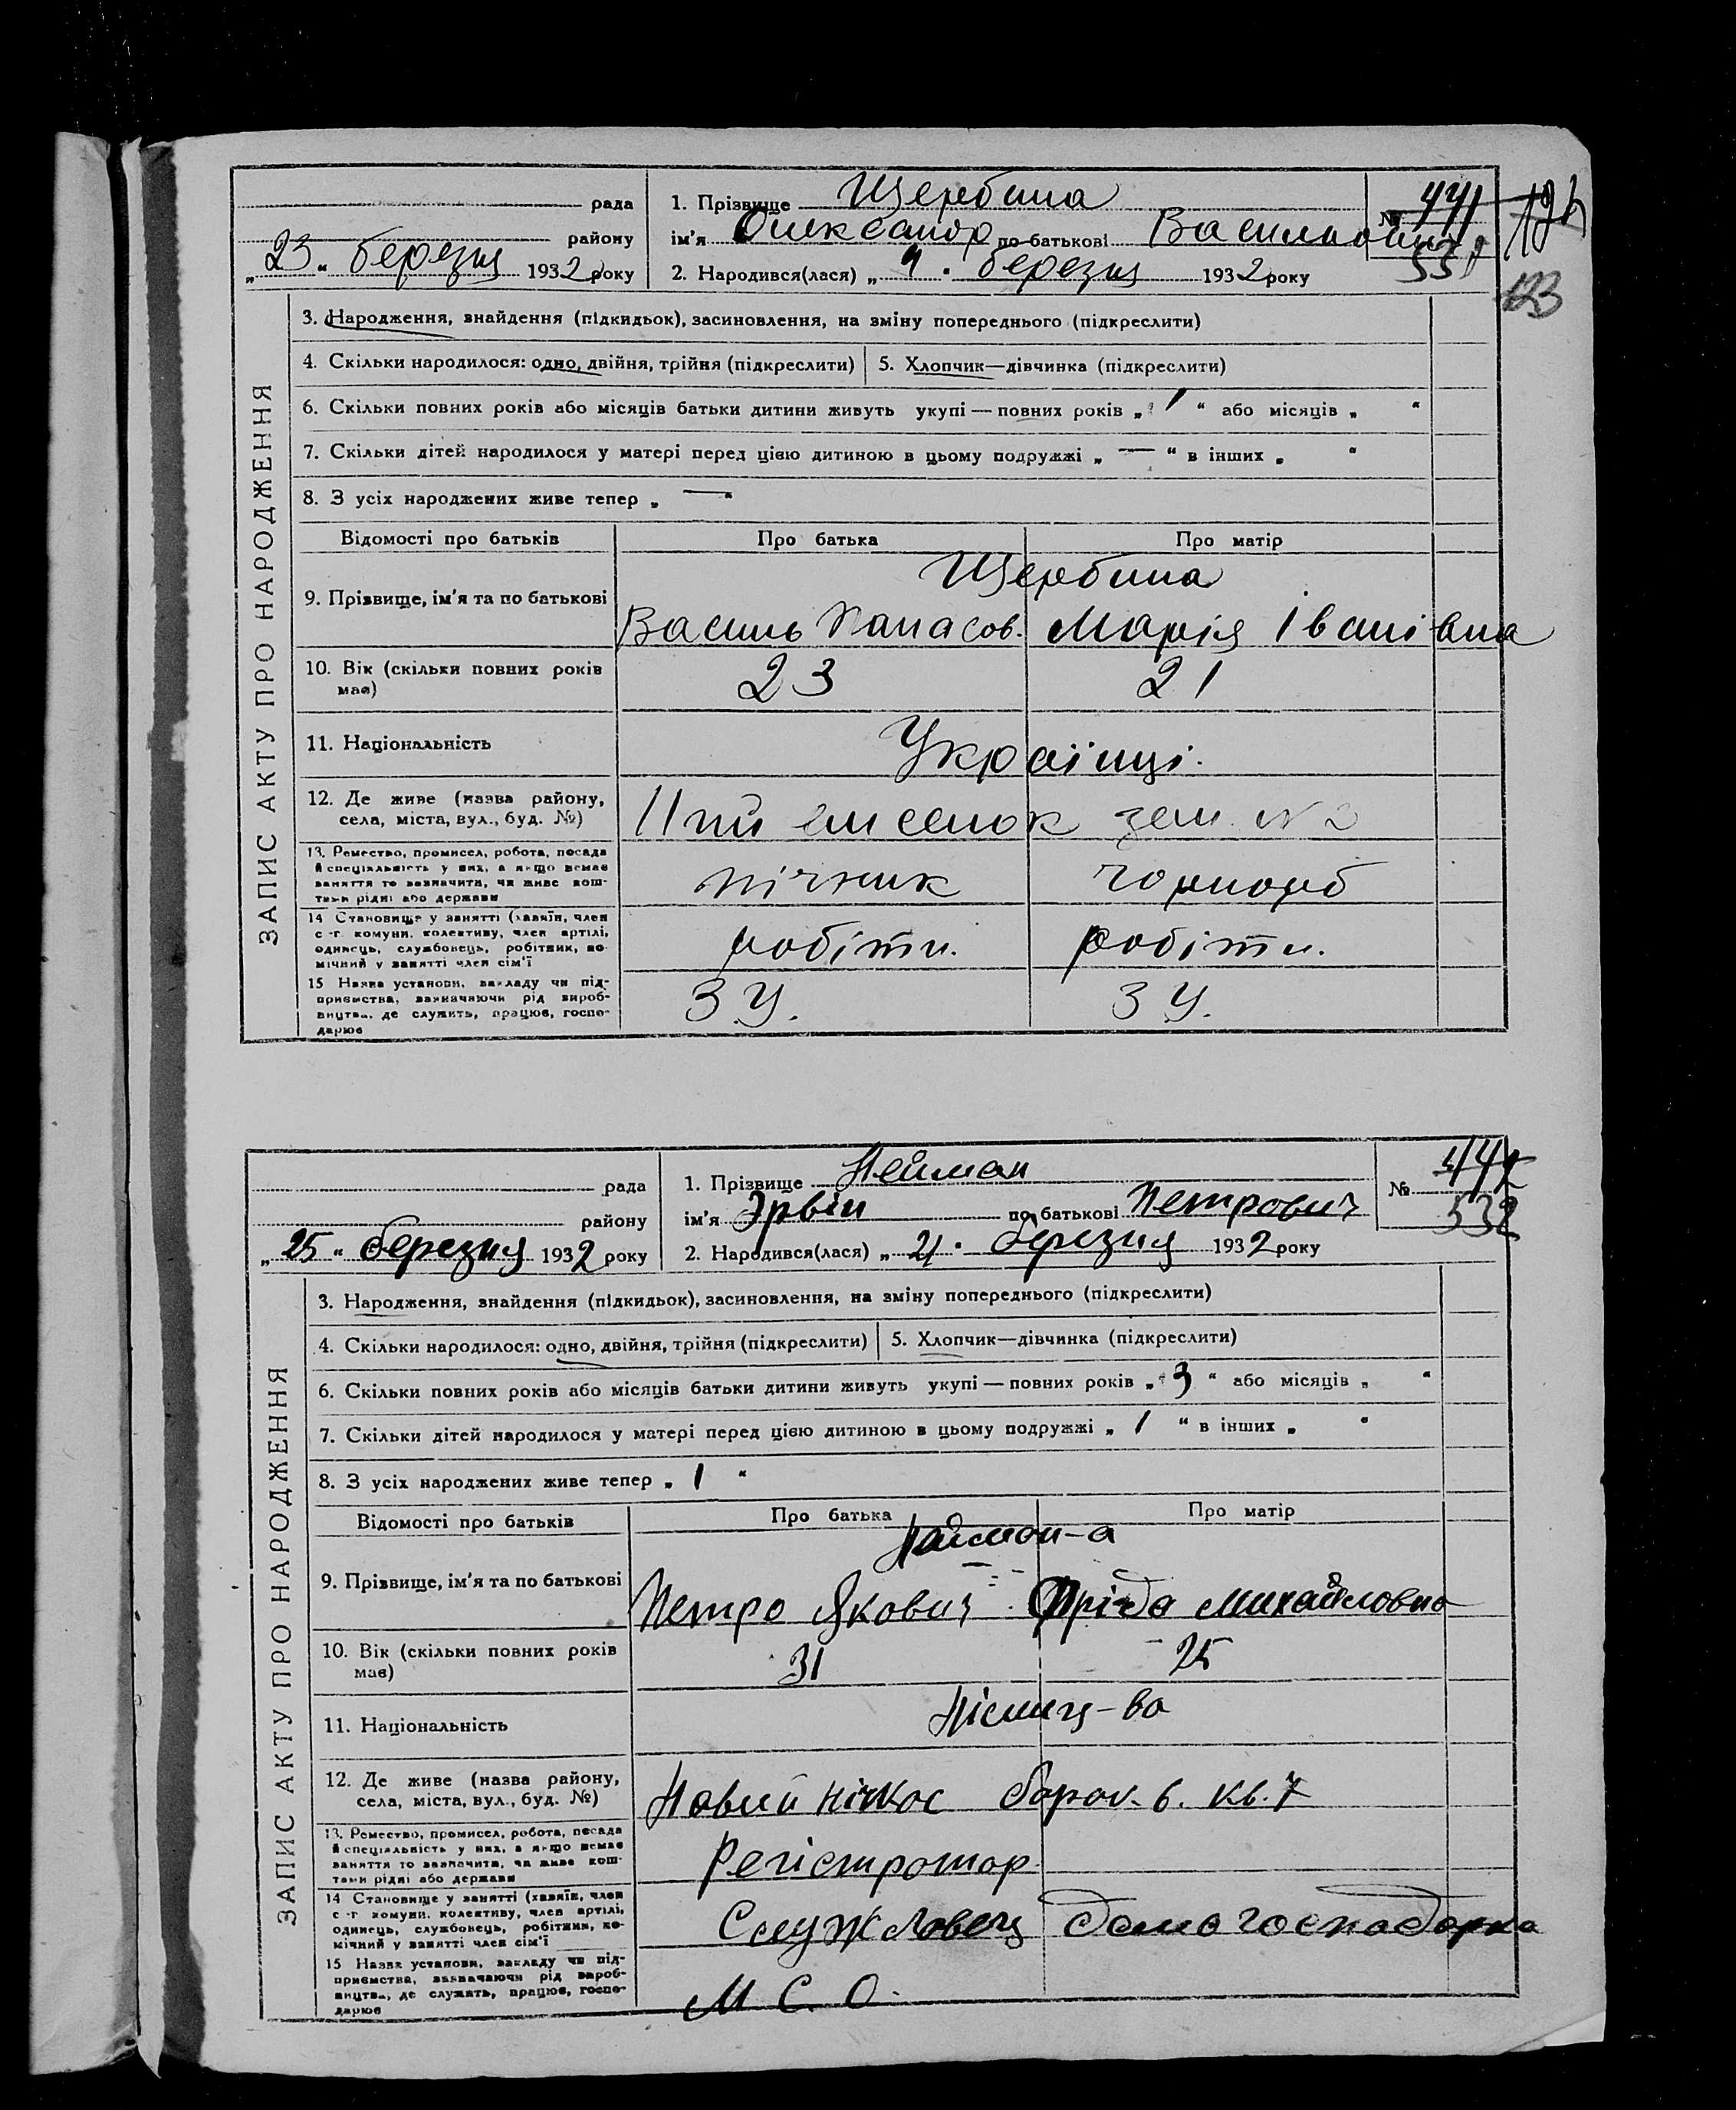 рада
1. Прізвище Щербина
№ 441
районy
ім'я Олександр по батькові Васильович
531
„23“ березня 1932 року
2. Народився(лася) „ 4 “ березня 1932 року
123
3. Народження, знайдення (підкидьок), засиновлення, на зміну попереднього (підкреслити)
4. Скільки народилося: одно, двійня, трійня (підкреслити) 5. Хлопчик—дівчинка (підкреслити)
6. Скільки повних років або місяців батьки дитини живуть укупі — повних років „ 1 “ або місяців „ “
7. Скільки дітей народилося у матері перед цією дитиною в цьому подружжі „ — “ в інших „ “
8. З усіх народжених живе тепер „ — “
ЗАПИС АКТУ ПРО НАРОДЖЕННЯ
Відомості про батьків Про батька Про матір
Щербина
9. Прізвище, ім'я та по батькові
Василь Панасов. Марія Іванівна
10. Вік (скільки повних років має)
23 21
11. Національність
Українці.
12. Де живе (назва району, села, міста, вул., буд. №)
зем. №2
13. Ремество, промисел, робота, посада й спеціяльність у них, а якщо немає заняття то зазначити, чи живе коштами рідні або держави
пічник чорнороб
14 Становище у занятті (хазяїн, член с.-г. комуни, колективу, член артілі, одинець, службовець, робітник, помічний у занятті член сім'ї
робітн. робітн.
15 Назва установи, закладу чи підприємства, зазначаючи рід виробництва, де служить, працює, господарює
З У. З У.
рада
1. Прізвище Нейман
№ 442
району
ім'я Эрвін по батькові Петрович
532
„25“ березня 1932 року
2. Народився(лася) „ 21 “ березня 1932 року
3. Народження, знайдення (підкидьок), засиновлення, на зміну попереднього (підкреслити)
4. Скільки народилося: одно, двійня, трійня (підкреслити) 5. Хлопчик—дівчинка (підкреслити)
6. Скільки повних років або місяців батьки дитини живуть укупі — повних років „ 3 “ або місяців „ “
7. Скільки дітей народилося у матері перед цією дитиною в цьому подружжі „ 1 “ в інших „ “
8. З усіх народжених живе тепер „ 1 “
ЗАПИС АКТУ ПРО НАРОДЖЕННЯ
Відомості про батьків Про батька Про матір
Найман-а
9. Прізвище, ім'я та по батькові
Петро Якович Фріда Михайловна
10. Вік (скільки повних років має)
31 25
11. Національність
Німець-ва
12. Де живе (назва району, села, міста, вул., буд. №)
Новий барак. 6. кв. 7
13. Ремество, промисел, робота, посада й спеціяльність у них, а якщо немає заняття то зазначити, чи живе коштами рідні або держави
Регістратор
14 Становище у занятті (хазяїн, член с.-г. комуни, колективу, член артілі, одинець, службовець, робітник, помічний у занятті член сім'ї
Службовець домогосподарка
15 Назва установи, закладу чи підприємства, зазначаючи рід виробництва, де служать, працює, господарює
М. С. О.